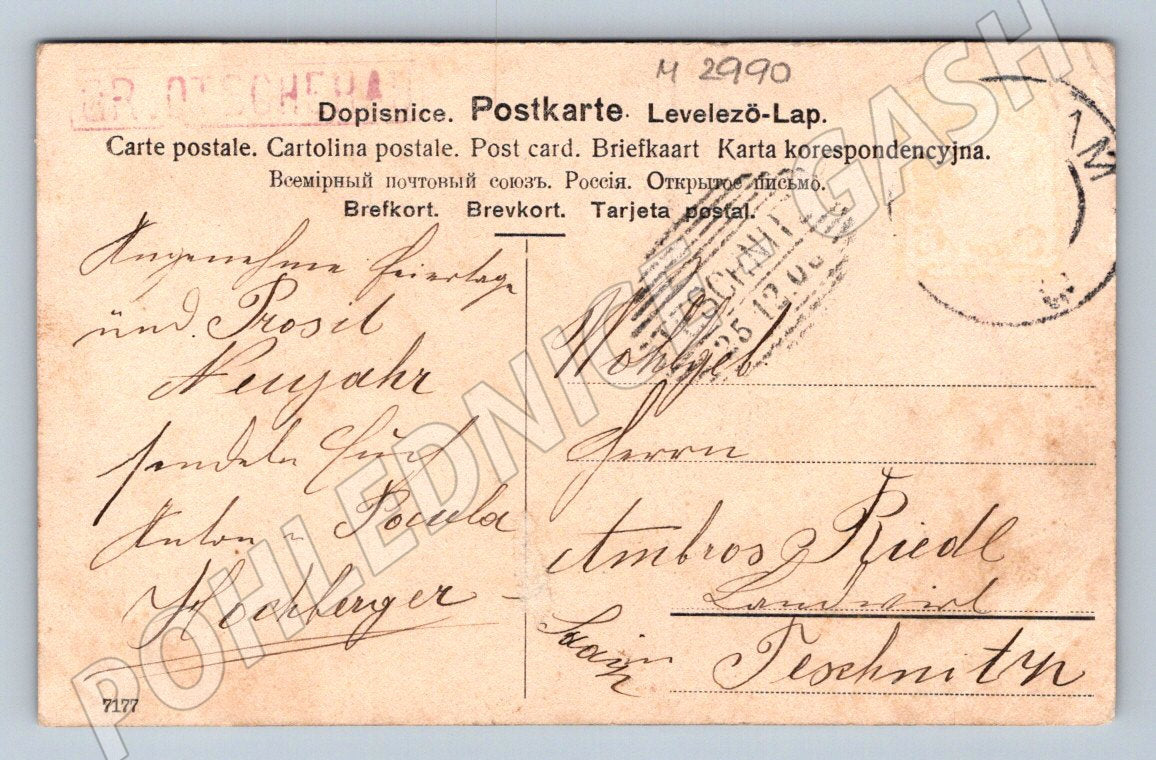 M 2990
GR. OTSCHEHAU
Dopisnice. Postkarte. Levelező-Lap.
Carte postale. Cartolina postale. Post card. Briefkaart Karta korespondencyjna.
Всемірный почтовый союзъ. Россія. Открытое письмо.
Brefkort. Brevkort. Tarjeta postal.
Angenehme Feiertage
und Prosit
Neujahr
senden Euch
Anton u
Hochberger
7177
25 12 0
Wohlgeb
Herrn
Ambros Riedl
Landwirt
Teschnitz
Saaz
POHLEDNICE GASH